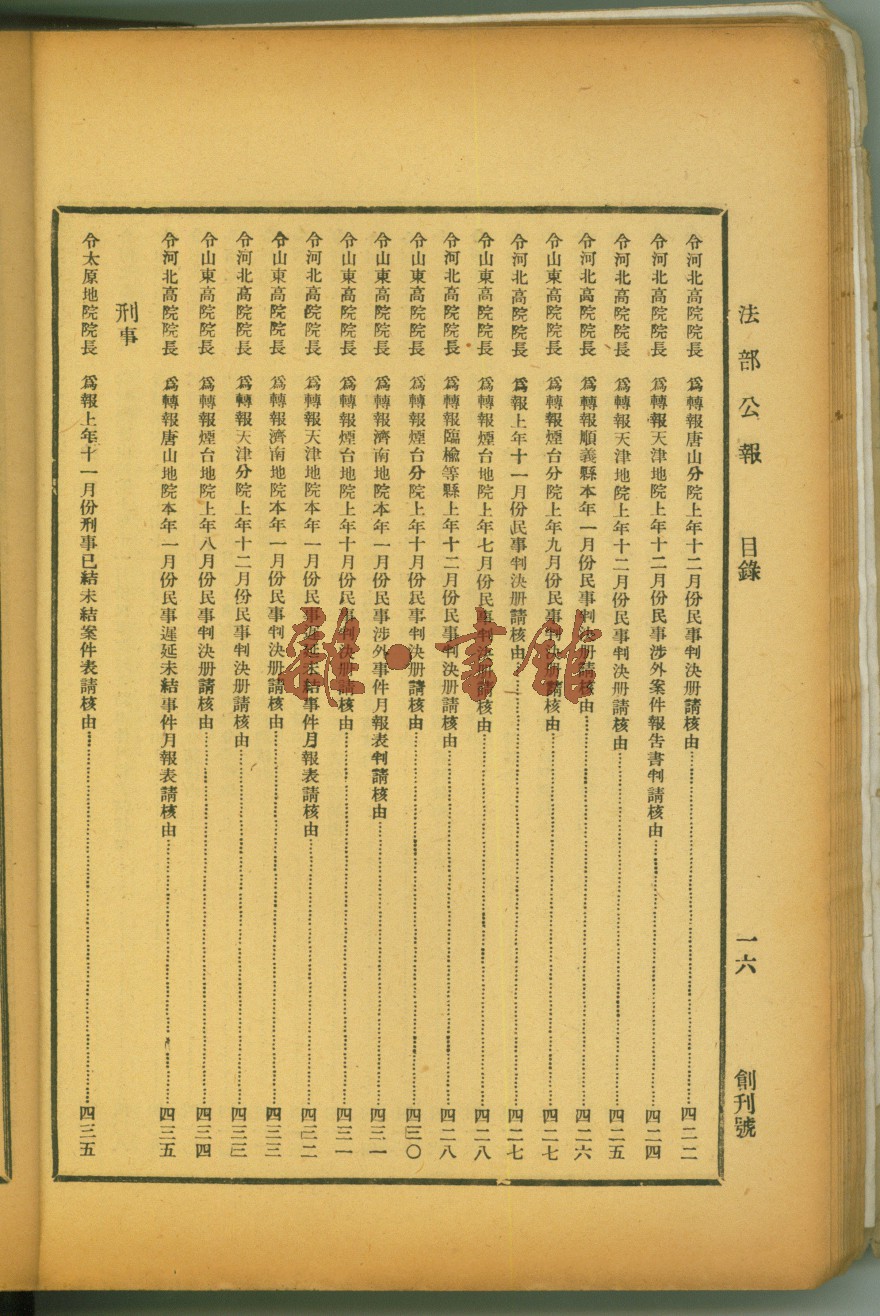 法部公報 目錄 一六 創刊號
令河北高院院長 爲轉報唐山分院上年十二月份民事判決册請核由……四二二
令河北高院院長 爲轉報天津地院上年十二月份民事涉外案件報告書判請核由……四二四
令河北高院院長 爲轉報天津地院上年十二月份民事判決册請核由……四二五
令河北高院院長 爲轉報順義縣本年一月份民事判決册請核由……四二六
令山東高院院長 爲轉報煙台分院上年九月份民事判決册請核由……四二七
令河北高院院長 爲報上年十一月份民事判決册請核由……四二七
令山東高院院長 爲轉報煙台地院上年七月份民事判決册請核由……四二八
令河北高院院長 爲轉報臨楡等縣上年十二月份民事判決册請核由……四二八
令山東高院院長 爲轉報煙台分院上年十月份民事判決册請核由……四三〇
令山東高院院長 爲轉報濟南地院本年一月份民事涉外事件月報表判請核由……四三一
令山東高院院長 爲轉報煙台地院上年十月份民事判決册請核由……四三一
令河北高院院長 爲轉報天津地院本年一月份民事遲延未結事件月報表請核由……四三二
令山東高院院長 爲轉報濟南地院本年一月份民事判決册請核由……四三三
令河北高院院長 爲轉報天津分院上年十二月份民事判決册請核由……四三三
令山東高院院長 爲轉報煙台地院上年八月份民事判決册請核由……四三四
令河北高院院長 爲轉報唐山地院本年一月份民事遲延未結事件月報表請核由……四三五
刑事
令太原地院院長 爲報上年十一月份刑事已結未結案件表請核由……四三五
雜·書館